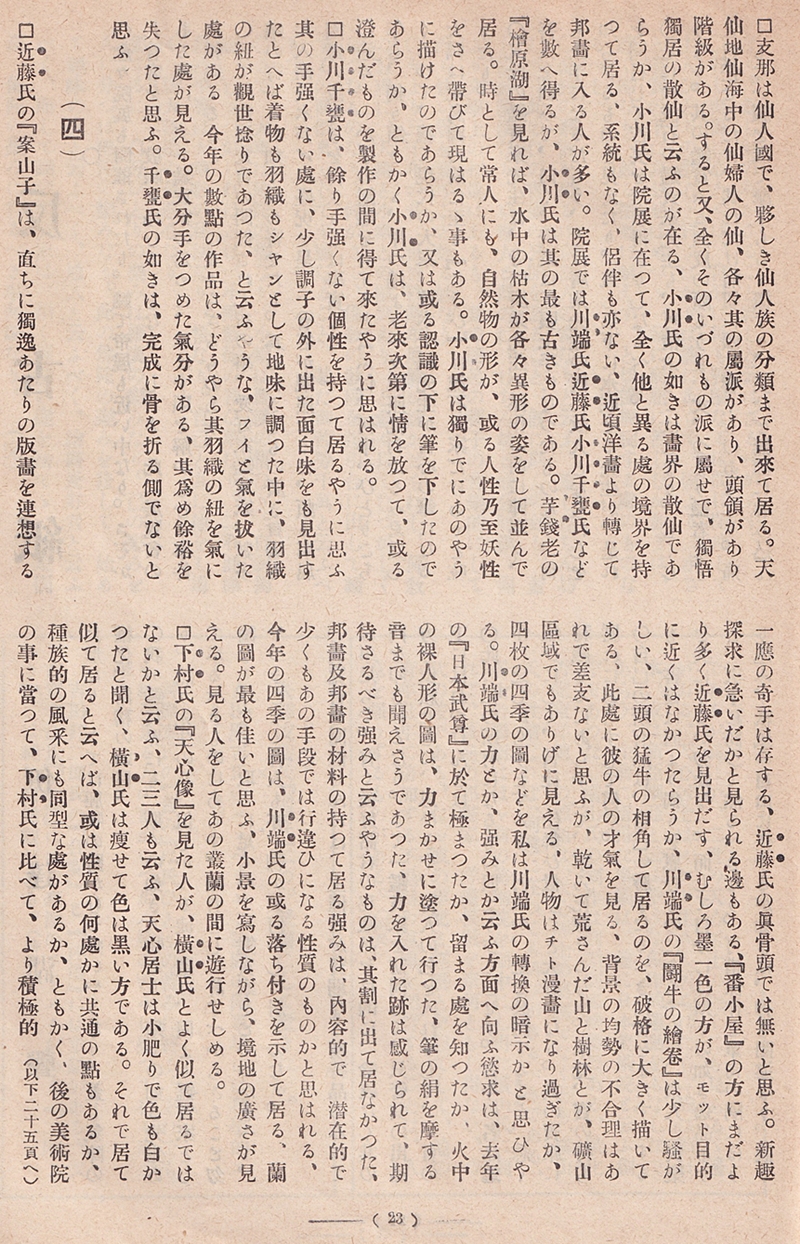 □支那は仙人國で、夥しき仙人族の分類まで出來て居る。天
仙地仙海中の仙婦人の仙、各々其の屬派があり、頭領があり
階級がある。すると又、全くそのいづれもの派に屬せで、獨悟
獨居の散仙と云ふのが在る、小川氏の如きは畵界の散仙であ
らうか、小川氏は院展に在つて、全く他と異る處の境界を持
つて居る、系統もなく、侶伴も亦ない、近頃洋畵より轉じて
邦畵に入る人が多い。院展では川端氏近藤氏小川千甕氏など
を數へ得るが、小川氏は其の最も古きものである。芋錢老の
『檜原湖』を見れば、水中の枯木が各々異形の姿をして並んで
居る。時として常人にも、自然物の形が、或る人性乃至妖性
をさへ帶びて現はるゝ事もある。小川氏は獨りでにあのやう
に描けたのであらうか、又は或る認識の下に筆を下したので
あらうか、ともかく小川氏は、老來次第に情を放つて、或る
澄んだものを製作の間に得て來たやうに思はれる。
□小川千甕は、餘り手强くない個性を持つて居るやうに思ふ
其の手强くない處に、少し調子の外に出た面白味をも見出す
たとへば着物も羽織もシャンとして地味に調つた中に、羽織
の紐が觀世捻りであつた、と云ふやうな、フイと氣を拔いた
處がある　今年の數點の作品は、どうやら其羽織の紐を氣に
した處が見える。大分手をつめた氣分がある、其爲め餘裕を
失つたと思ふ。千甕氏の如きは、完成に骨を折る側でないと
思ふ
（四）
□近藤氏の『案山子』は、直ちに獨逸あたりの版畵を連想する
一應の奇手は存する、近藤氏の眞骨頭では無いと思ふ。新趣
探求に急いだかと見られる邊もある、『番小屋』の方にまだよ
り多く近藤氏を見出だす、むしろ墨一色の方が、モット目的
に近くはなかつたらうか、川端氏の『鬪牛の繪卷』は少し騷が
しい、二頭の猛牛の相角して居るのを、破格に大きく描いて
ある、此處に彼の人の才氣を見る、背景の均勢の不合理はあ
れで差支ないと思ふが、乾いて荒さんだ山と樹林とが、礦山
區域でもありげに見える、人物はチト漫畵になり過ぎたか、
四枚の四季の圖などを私は川端氏の轉換の暗示かと思ひや
る。川端氏の力とか、强みとか云ふ方面へ向ふ慾求は、去年
の『日本武尊』に於て極まつたか、留まる處を知つたか、火中
の裸人形の圖は、力まかせに塗つて行つた、筆の絹を摩する
音までも聞えさうであつた、力を入れた跡は感じられて、期
待さるべき强みと云ふやうなものは、其割に出て居なかつた、
邦畵及邦畵の材料の持つて居る强みは、內容的で　潜在的で
少くもあの手段では行違ひになる性質のものかと思はれる、
今年の四季の圖は、川端氏の或る落ち付きを示して居る、蘭
の圖が最も佳いと思ふ、小景を寫しながら、境地の廣さが見
える。見る人をしてあの叢蘭の間に遊行せしめる。
□下村氏の『天心像』を見た人が、橫山氏とよく似て居るでは
ないかと云ふ、二三人も云ふ、天心居士は小肥りで色も白か
つたと聞く、橫山氏は瘦せて色は黑い方である。それで居て
似て居ると云へば、或は性質の何處かに共通の點もあるか、
種族的の風采にも同型な處があるか、ともかく、後の美術院
の事に當つて、下村氏に比べて、より積極的　（以下二十五頁へ）
（23）